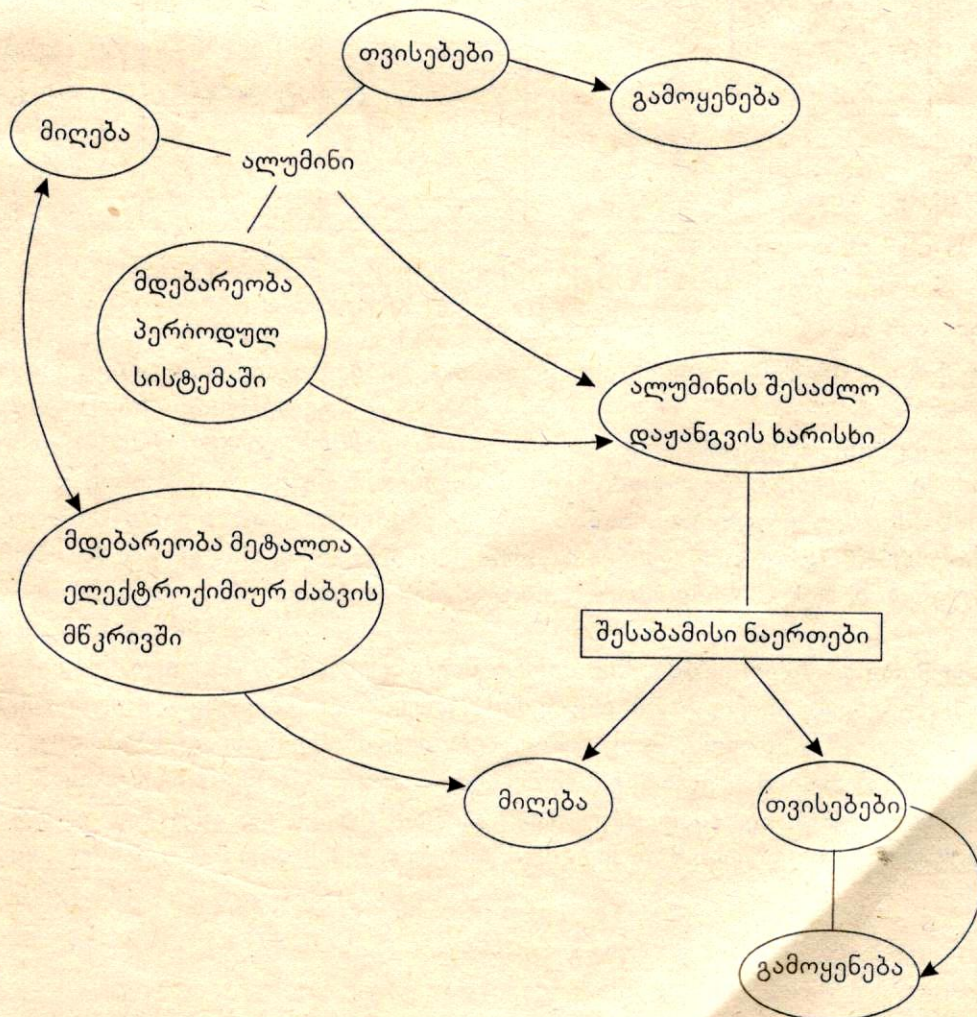 თვისებები
გამოყენება
მიღება
ალუმინი
მდებარეობა
პერიოდულ
სისტემაში
ალუმინის შესაძლო
დაჟანგვის ხარისხი
მდებარეობა მეტალთა
ელექტროქიმიურ ძაბვის
მწკრივში
შესაბამისი ნაერთები
მიღება
თვისებები
გამოყენება